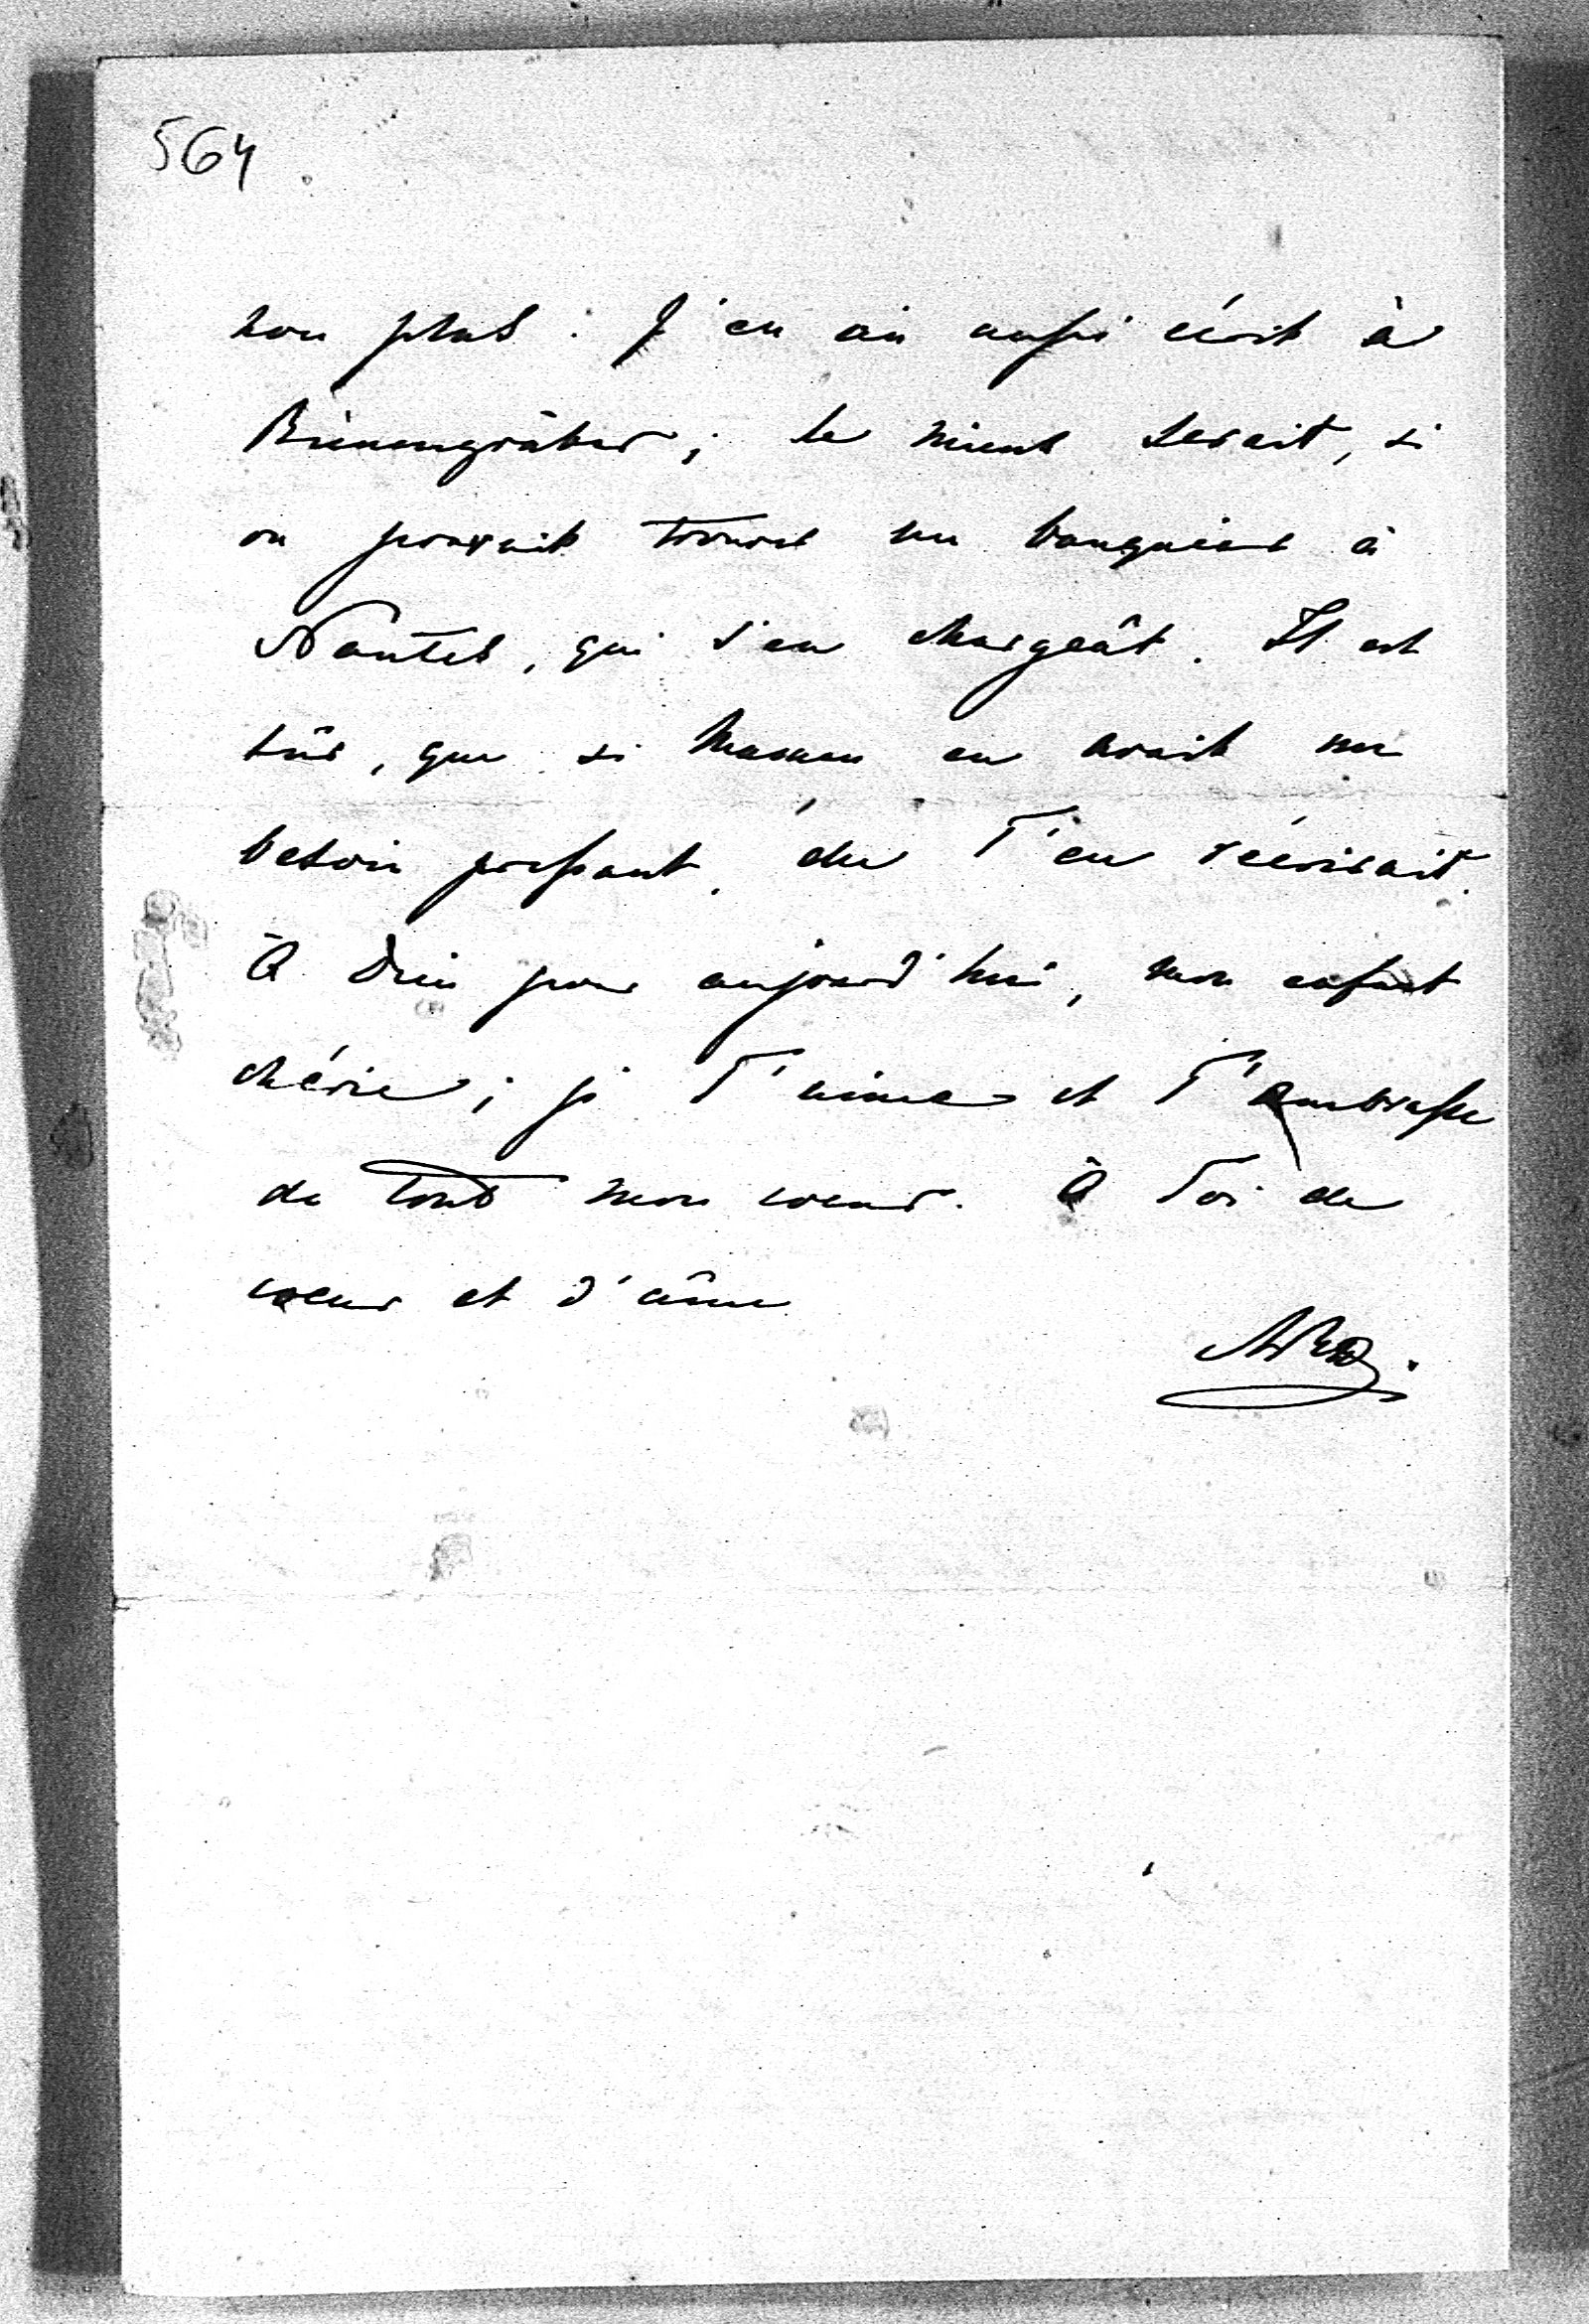 564
non plus. J'en ai aussi écrit à
Bienengräber; le mieux serait, si
on pouvait trouver un banquier à
Nantes, qui s'en chargeât. Il est
sûr, que si Maman en avait un
besoin pressant, elle T'en récrirait.
À Dieu pour aujourd'hui, mon enfant
chérie; je T'aime et T'embrasse
de tout mon coeur. À Toi de
coeur et d'âme